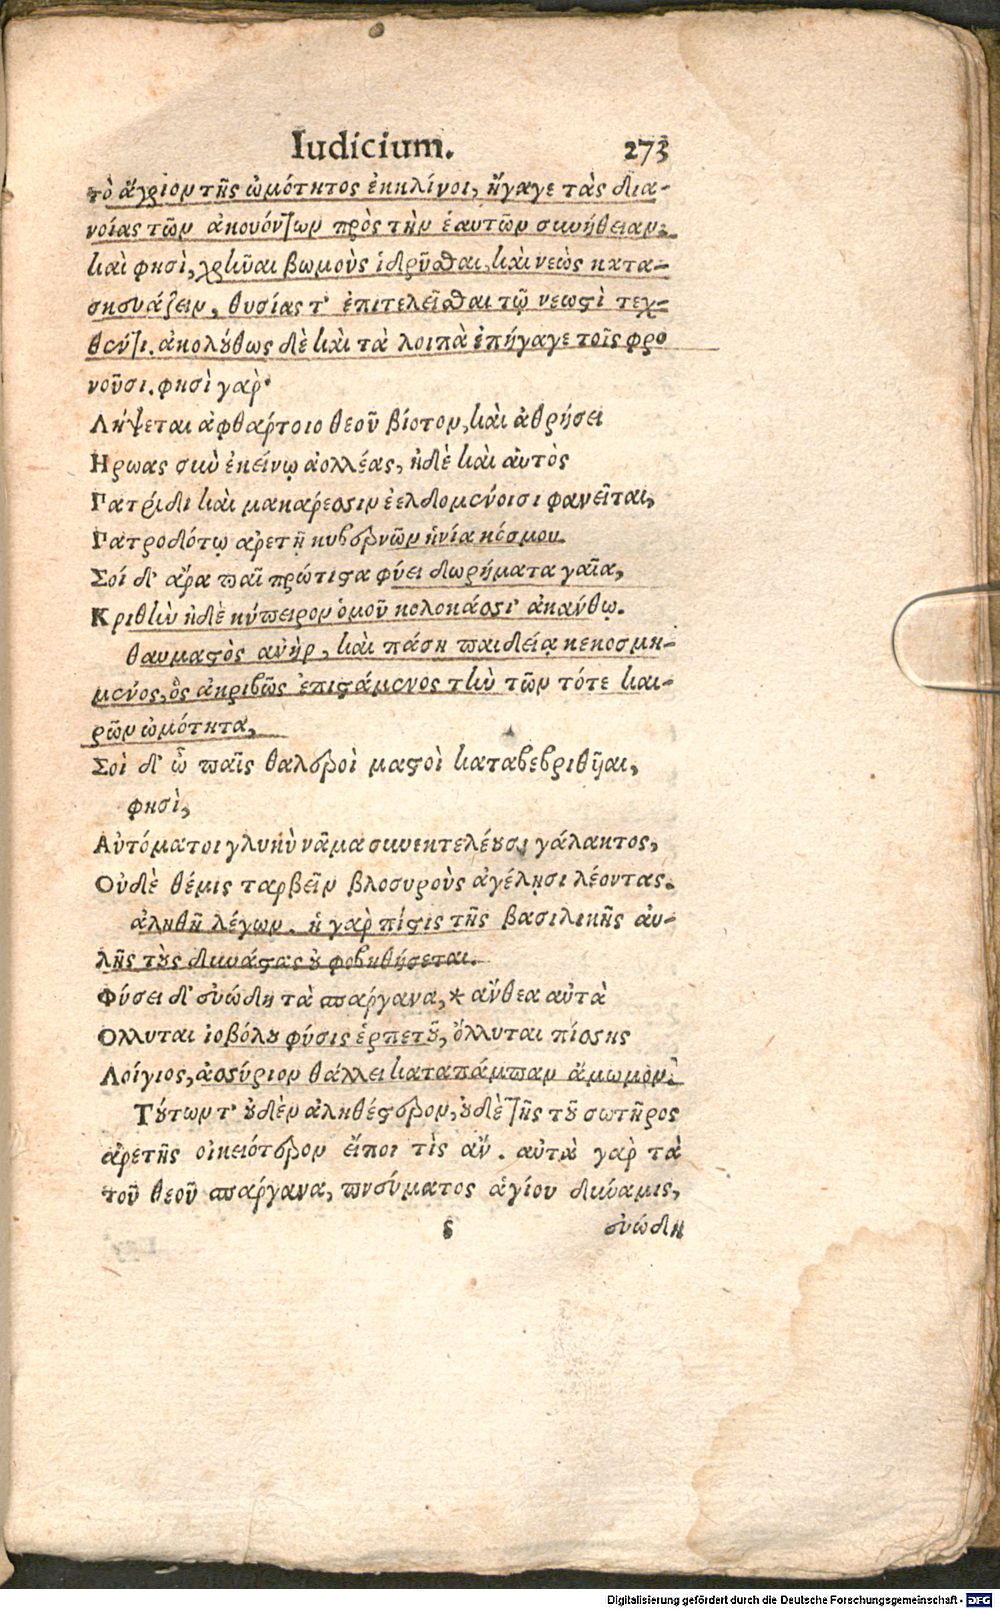 Iudicium. 273
τὸ ἄγριον τῆς ὠμότητος ἐκκλίνοι, ἤγαγε τὰς δια-
νοίας τῶν ἀκουόντων πρὸς τὴν ἑαυτῶν συνήθειαν,
καὶ φησὶ, χρῆναι βωμοὺς ἱδρῦσθαι, καὶ νεὼς κατα-
σκευάζειν, θυσίας τ' ἐπιτελεῖσθαι τῷ νεωστὶ τεχ-
θέντι. ἀκολούθως δὲ καὶ τὰ λοιπὰ ἐπήγαγε τοῖς φρο
νοῦσι. φησὶ γαρ·
Λήψεται ἀφθάρτοιο θεοῦ βίοτον, καὶ ἀθρήσει
Ηρωας σὺν ἐκείνῳ ἀολλέας, ἠδὲ καὶ αὐτὸς
Πατρίδι καὶ μακάρεσσιν ἐελδομένοισι φανεῖται,
Πατροδότῳ ἀρετῇ κυβερνῶν ἡνία κόσμου.
Σοί δ' ἄρα παῖ πρώτιστα φύει δωρήματα γαῖα,
Κριθὴν ἠδὲ κύπειρον ὁμοῦ κολοκάσσι' ἀκάνθῳ.
θαυμαστὸς ἀνὴρ, καὶ πάσῃ παιδείᾳ κεκοσμη-
μένος, ὃς ἀκριβῶς ἐπιστάμενος τὴν τῶν τότε και-
ρῶν ὠμότητα,
Σοὶ δ' ὦ παῖς θαλεροὶ μαστοὶ καταβεβρίθασι,
φησὶ,
Αὐτόματοι γλυκὺ νᾶμα συνεκτελέουσι γάλακτος,
Οὐδὲ θέμις ταρβεῖν βλοσυροὺς ἀγέλῃσι λέοντας.
ἀληθῆ λέγων. ἡ γὰρ πίστις τῆς βασιλικῆς αὐ-
λῆς τοὺς δυνάστας οὐ φοβηθήσεται.
Φύσει δ' εὐώδη τὰ σπάργανα, * ἄνθεα αὐτὰ
Ολλυται ἰοβόλου φύσις ἑρπετοῦ, ὄλλυται πίσσης
Λοίγιος, ἀσσύριον θάλλει καταπάμπαν ἄμωμον.
Τούτων τ' οὐδὲν ἀληθέστερον, οὐδὲ τῆς τοῦ σωτῆρος
ἀρετῆς οἰκειότερον εἴποι τὶς ἄν. αὐτὰ γὰρ τὰ
τοῦ θεοῦ σπάργανα, πνεύματος ἁγίου δύναμις,
s εὐώδη
Digitalisierung gefördert durch die Deutsche Forschungsgemeinschaft - DFG